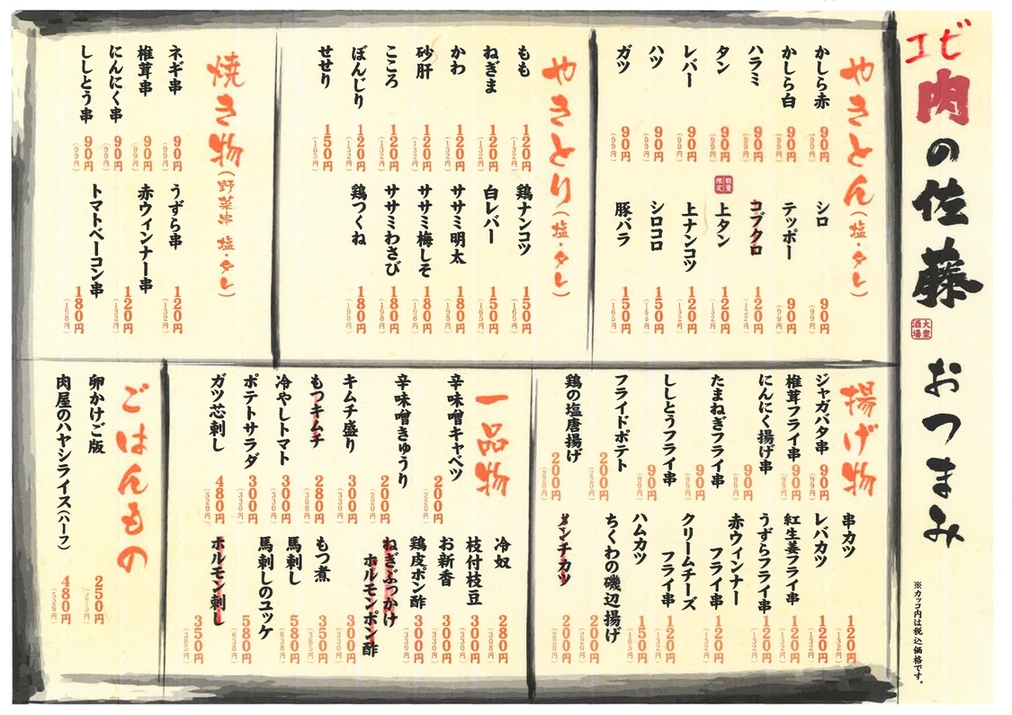 エビ
肉の佐藤
大衆酒場
おつまみ
※カッコ内は税込価格です。
やきとん(塩・タレ)
かしら赤 90円 (99円)
かしら白 90円 (99円)
ハラミ 90円 (99円)
タン 90円 (99円)
レバー 90円 (99円)
ハツ 90円 (99円)
ガツ 90円 (99円)
シロ 90円 (99円)
テッポー 90円 (99円)
コブクロ 120円 (132円)
数量限定
上タン 120円 (132円)
上ナンコツ 120円 (132円)
シロコロ 150円 (165円)
豚バラ 150円 (165円)
やきとり(塩・タレ)
もも 120円 (132円)
ねぎま 120円 (132円)
かわ 120円 (132円)
砂肝 120円 (132円)
こころ 120円 (132円)
ぼんじり 120円 (132円)
せせり 150円 (165円)
鶏ナンコツ 150円 (165円)
白レバー 150円 (165円)
ササミ明太 180円 (198円)
ササミ梅しそ 180円 (198円)
ササミわさび 180円 (198円)
鶏つくね 180円 (198円)
焼き物(野菜串 塩・タレ)
ネギ串 90円 (99円)
椎茸串 90円 (99円)
にんにく串 90円 (99円)
ししとう串 90円 (99円)
うずら串 120円 (132円)
赤ウィンナー串 120円 (132円)
トマトベーコン串 180円 (198円)
揚げ物
ジャガバタ串 90円 (99円)
椎茸フライ串 90円 (99円)
にんにく揚げ串 90円 (99円)
たまねぎフライ串 90円 (99円)
ししとうフライ串 90円 (99円)
フライドポテト 200円 (220円)
鶏の塩唐揚げ 200円 (220円)
串カツ 120円 (132円)
レバカツ 120円 (132円)
紅生姜フライ串 120円 (132円)
うずらフライ串 120円 (132円)
赤ウィンナーフライ串 120円 (132円)
クリームチーズフライ串 120円 (132円)
ハムカツ 150円 (165円)
ちくわの磯辺揚げ 200円 (220円)
メンチカツ 200円 (220円)
一品物
辛味噌キャベツ 200円 (220円)
辛味噌きゅうり 200円 (220円)
キムチ盛り 300円 (330円)
もつキムチ 280円 (308円)
冷やしトマト 300円 (330円)
ポテトサラダ 300円 (330円)
ガツ芯刺し 480円 (528円)
冷奴 280円 (308円)
枝付枝豆 300円 (330円)
お新香 300円 (330円)
鶏皮ポン酢 300円 (330円)
ねぎぶっかけホルモンポン酢 300円 (330円)
もつ煮 350円 (385円)
馬刺し 580円 (638円)
馬刺しのユッケ 580円 (638円)
ホルモン刺し 350円 (385円)
ごはんもの
卵かけご版 250円 (275円)
肉屋のハヤシライス(ハーフ) 480円 (528円)